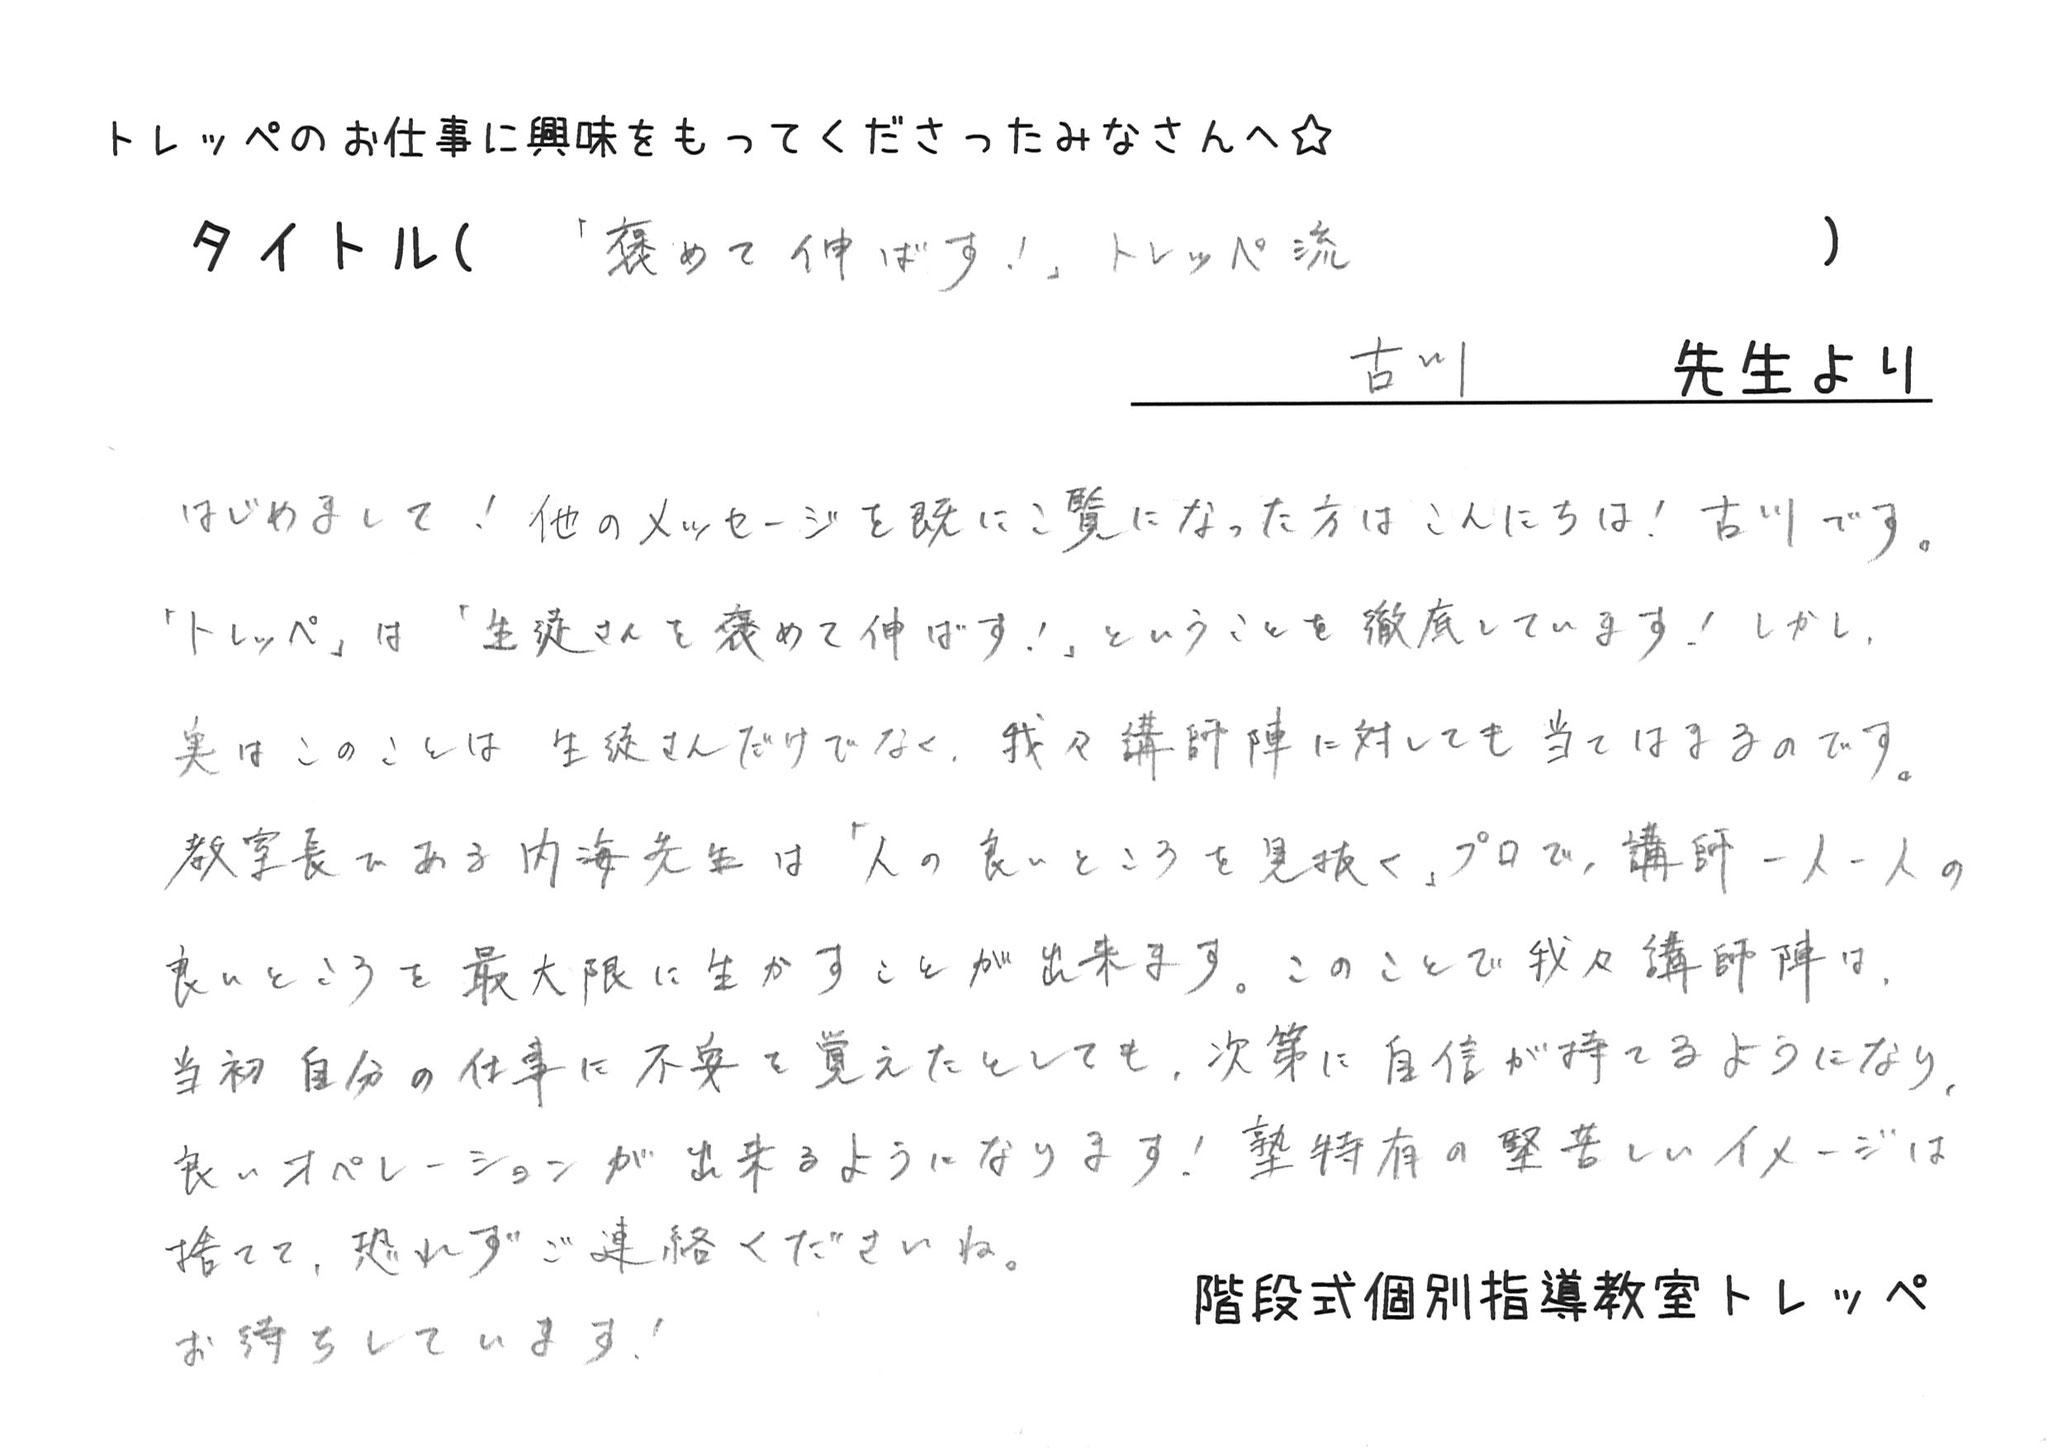 トレッペのお仕事に興味をもってくださったみなさんへ☆
タイトル(「褒めて伸ばす!」トレッペ流)
古川 先生より
はじめまして!他のメッセージを既にご覧になった方はこんにちは!古川です。
「トレッペ」は「生徒さんを褒めて伸ばす!」ということを徹底しています!しかし、
実はこのことは生徒さんだけでなく、我々講師陣に対しても当てはまるのです。
教室長である内海先生は「人の良いところを見抜く」プロで、講師一人一人の
良いところを最大限に生かすことが出来ます。このことで我々講師陣は、
当初自分の仕事に不安を覚えたとしても、次第に自信が持てるようになり、
良いオペレーションが出来るようになります!塾特有の堅苦しいイメージは
捨てて、恐れずご連絡くださいね。
お待ちしています!
階段式個別指導教室トレッペ